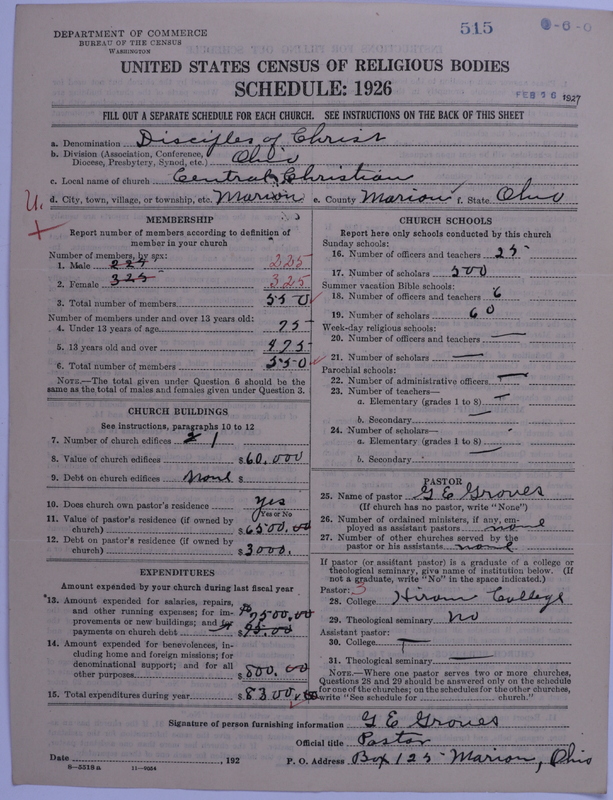 515
DEPARTMENT OF COMMERCE
BUREAU OF THE CENSUS
WASHINGTON
UNITED STATES CENSUS OF RELIGIOUS BODIES
SCHEDULE: 1926
FEB 26 1927
FILL OUT A SEPARATE SCHEDULE FOR EACH CHURCH. SEE INSTRUCTIONS ON THE BACK OF THIS SHEET
a. Denomination Disciples of Christ
b. Division (Association, Conference, Diocese, Presbytery, Synod, etc.) Ohio
c. Local name of church Central Christian
U. d. City, town, village, or township, etc. Marion e. County Marion f. State. Ohio
MEMBERSHIP
Report number of members according to definition of
member in your church
Number of members, by sex:
1. Male 225 225
2. Female 325 325
3. Total number of members 550
Number of members under and over 13 years old:
4. Under 13 years of age 75
5. 13 years old and over 475
6. Total number of members 550
NOTE.—The total given under Question 6 should be the
same as the total of males and females given under Question 3.
CHURCH BUILDINGS
See instructions, paragraphs 10 to 12
7. Number of church edifices 1
8. Value of church edifices $60,000
9. Debt on church edifices none $
10. Does church own pastor's residence yes
Yes or No
11. Value of pastor's residence (if owned by
church) $6500.00
12. Debt on pastor's residence (if owned by
church) $3000.
EXPENDITURES
Amount expended by your church during last fiscal year
*13. Amount expended for salaries, repairs,
and other running expenses; for im-
provements or new buildings; and for
payments on church debt $7500.00
14. Amount expended for benevolences, in-
cluding home and foreign missions; for
denominational support; and for all
other purposes $800.00
15. Total expenditures during year $8300.00
CHURCH SCHOOLS
Report here only schools conducted by this church
Sunday schools:
16. Number of officers and teachers 25
17. Number of scholars 500
Summer vacation Bible schools:
18. Number of officers and teachers 6
19. Number of scholars 60
Week-day religious schools:
20. Number of officers and teachers —
21. Number of scholars —
Parochial schools:
22. Number of administrative officers —
23. Number of teachers—
a. Elementary (grades 1 to 8) —
b. Secondary —
24. Number of scholars—
a. Elementary (grades 1 to 8) —
b. Secondary —
PASTOR
25. Name of pastor G E Groves
(If church has no pastor, write "None")
26. Number of ordained ministers, if any, em-
ployed as assistant pastors none
27. Number of other churches served by the
pastor or his assistants none
If pastor (or assistant pastor) is a graduate of a college or
theological seminary, give name of institution below. (If
not a graduate, write "No" in the space indicated.)
Pastor: 3
28. College Hiram College
29. Theological seminary No
Assistant pastor:
30. College —
31. Theological seminary —
NOTE.—Where one pastor serves two or more churches,
Questions 28 and 29 should be answered only on the schedule
for one of the churches; on the schedules for the other churches,
write "See schedule for church."
Signature of person furnishing information G E Groves
Official title Pastor
Date , 192 P. O. Address Box 125 Marion, Ohio
8—5518 a 11—9054